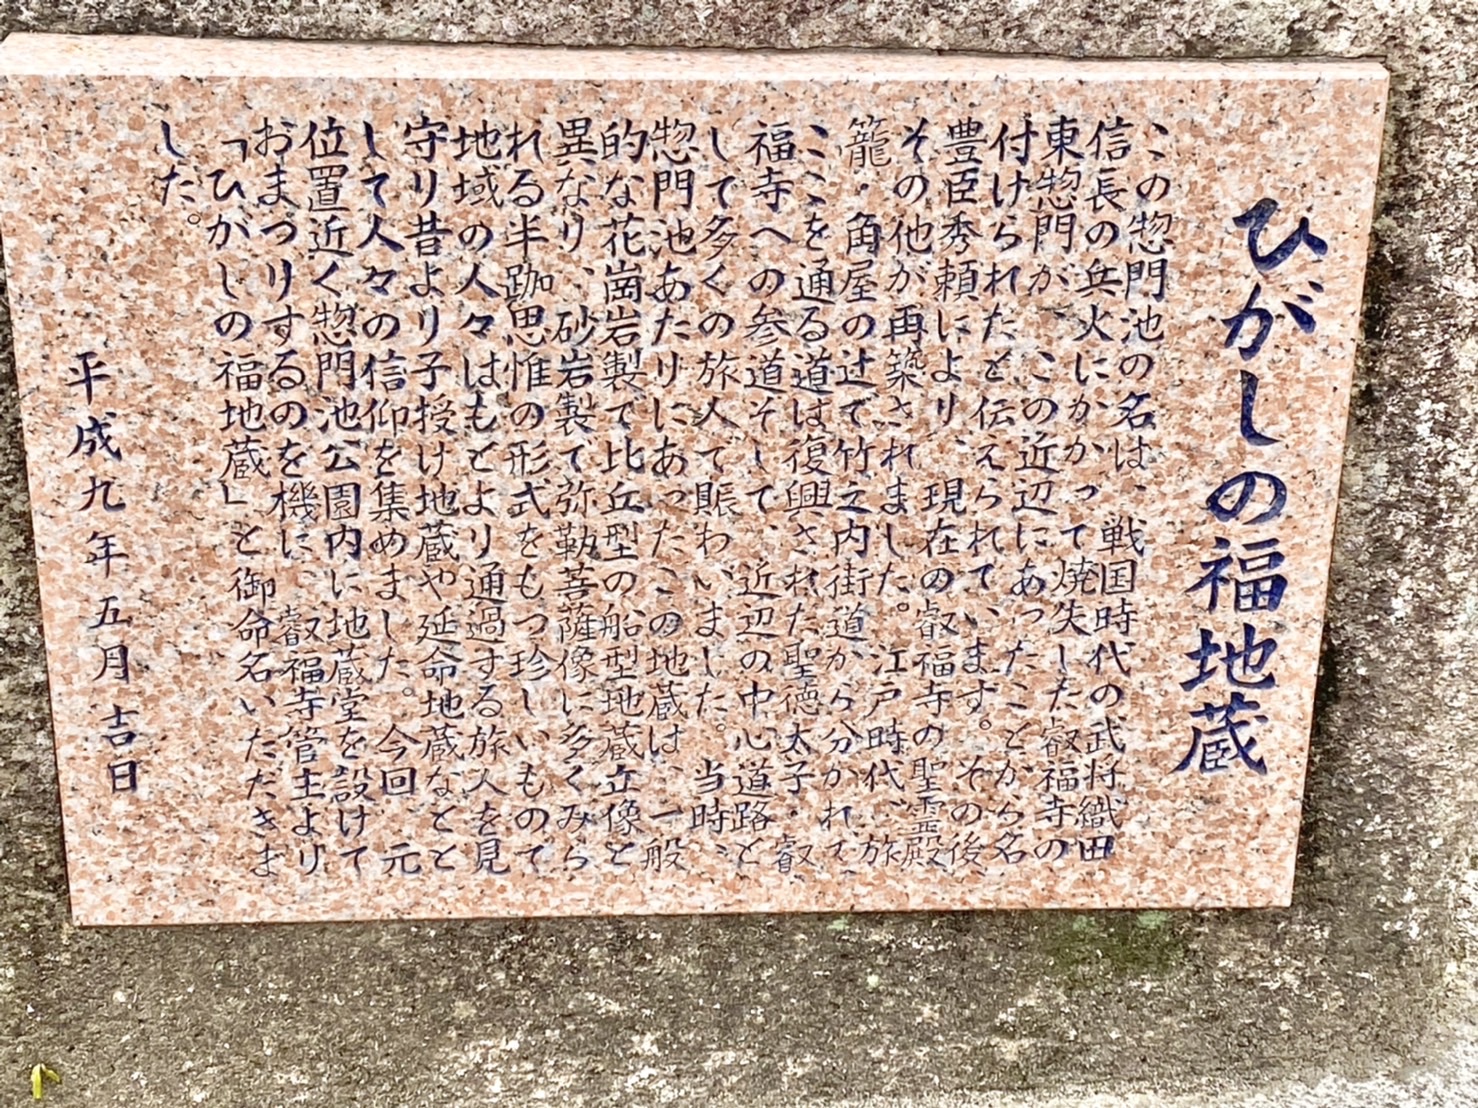 ひがしの福地蔵
この惣門池の名は、戦国時代の武将織田
信長の兵火にかかって焼失した叡福寺の
東惣門が、この近辺にあったことから名
付けられたと伝えられています。その後、
豊臣秀頼により、現在の叡福寺の聖霊殿、
その他が再築されました。江戸時代、旅
籠・角屋の辻で竹之内街道から分かれて、
ここを通る道は復興された聖徳太子・叡
福寺への参道そして、近辺の中心道路と
して多くの旅人で賑わいました。当時、
惣門池あたりにあったこの地蔵は、一般
的な花崗岩製で比丘型の船型地蔵立像と
異なり、砂岩製で弥勒菩薩像に多くみら
れる半跏思惟の形式をもつ珍しいもので
地域の人々はもとより通過する旅人を見
守り昔より子授け地蔵や延命地蔵などと
して人々の信仰を集めました。今回、元
位置近く惣門池公園内に地蔵堂を設けて
おまつりするのを機に、叡福寺管主より
「ひがしの福地蔵」と御命名いただきま
した。
平成九年五月吉日